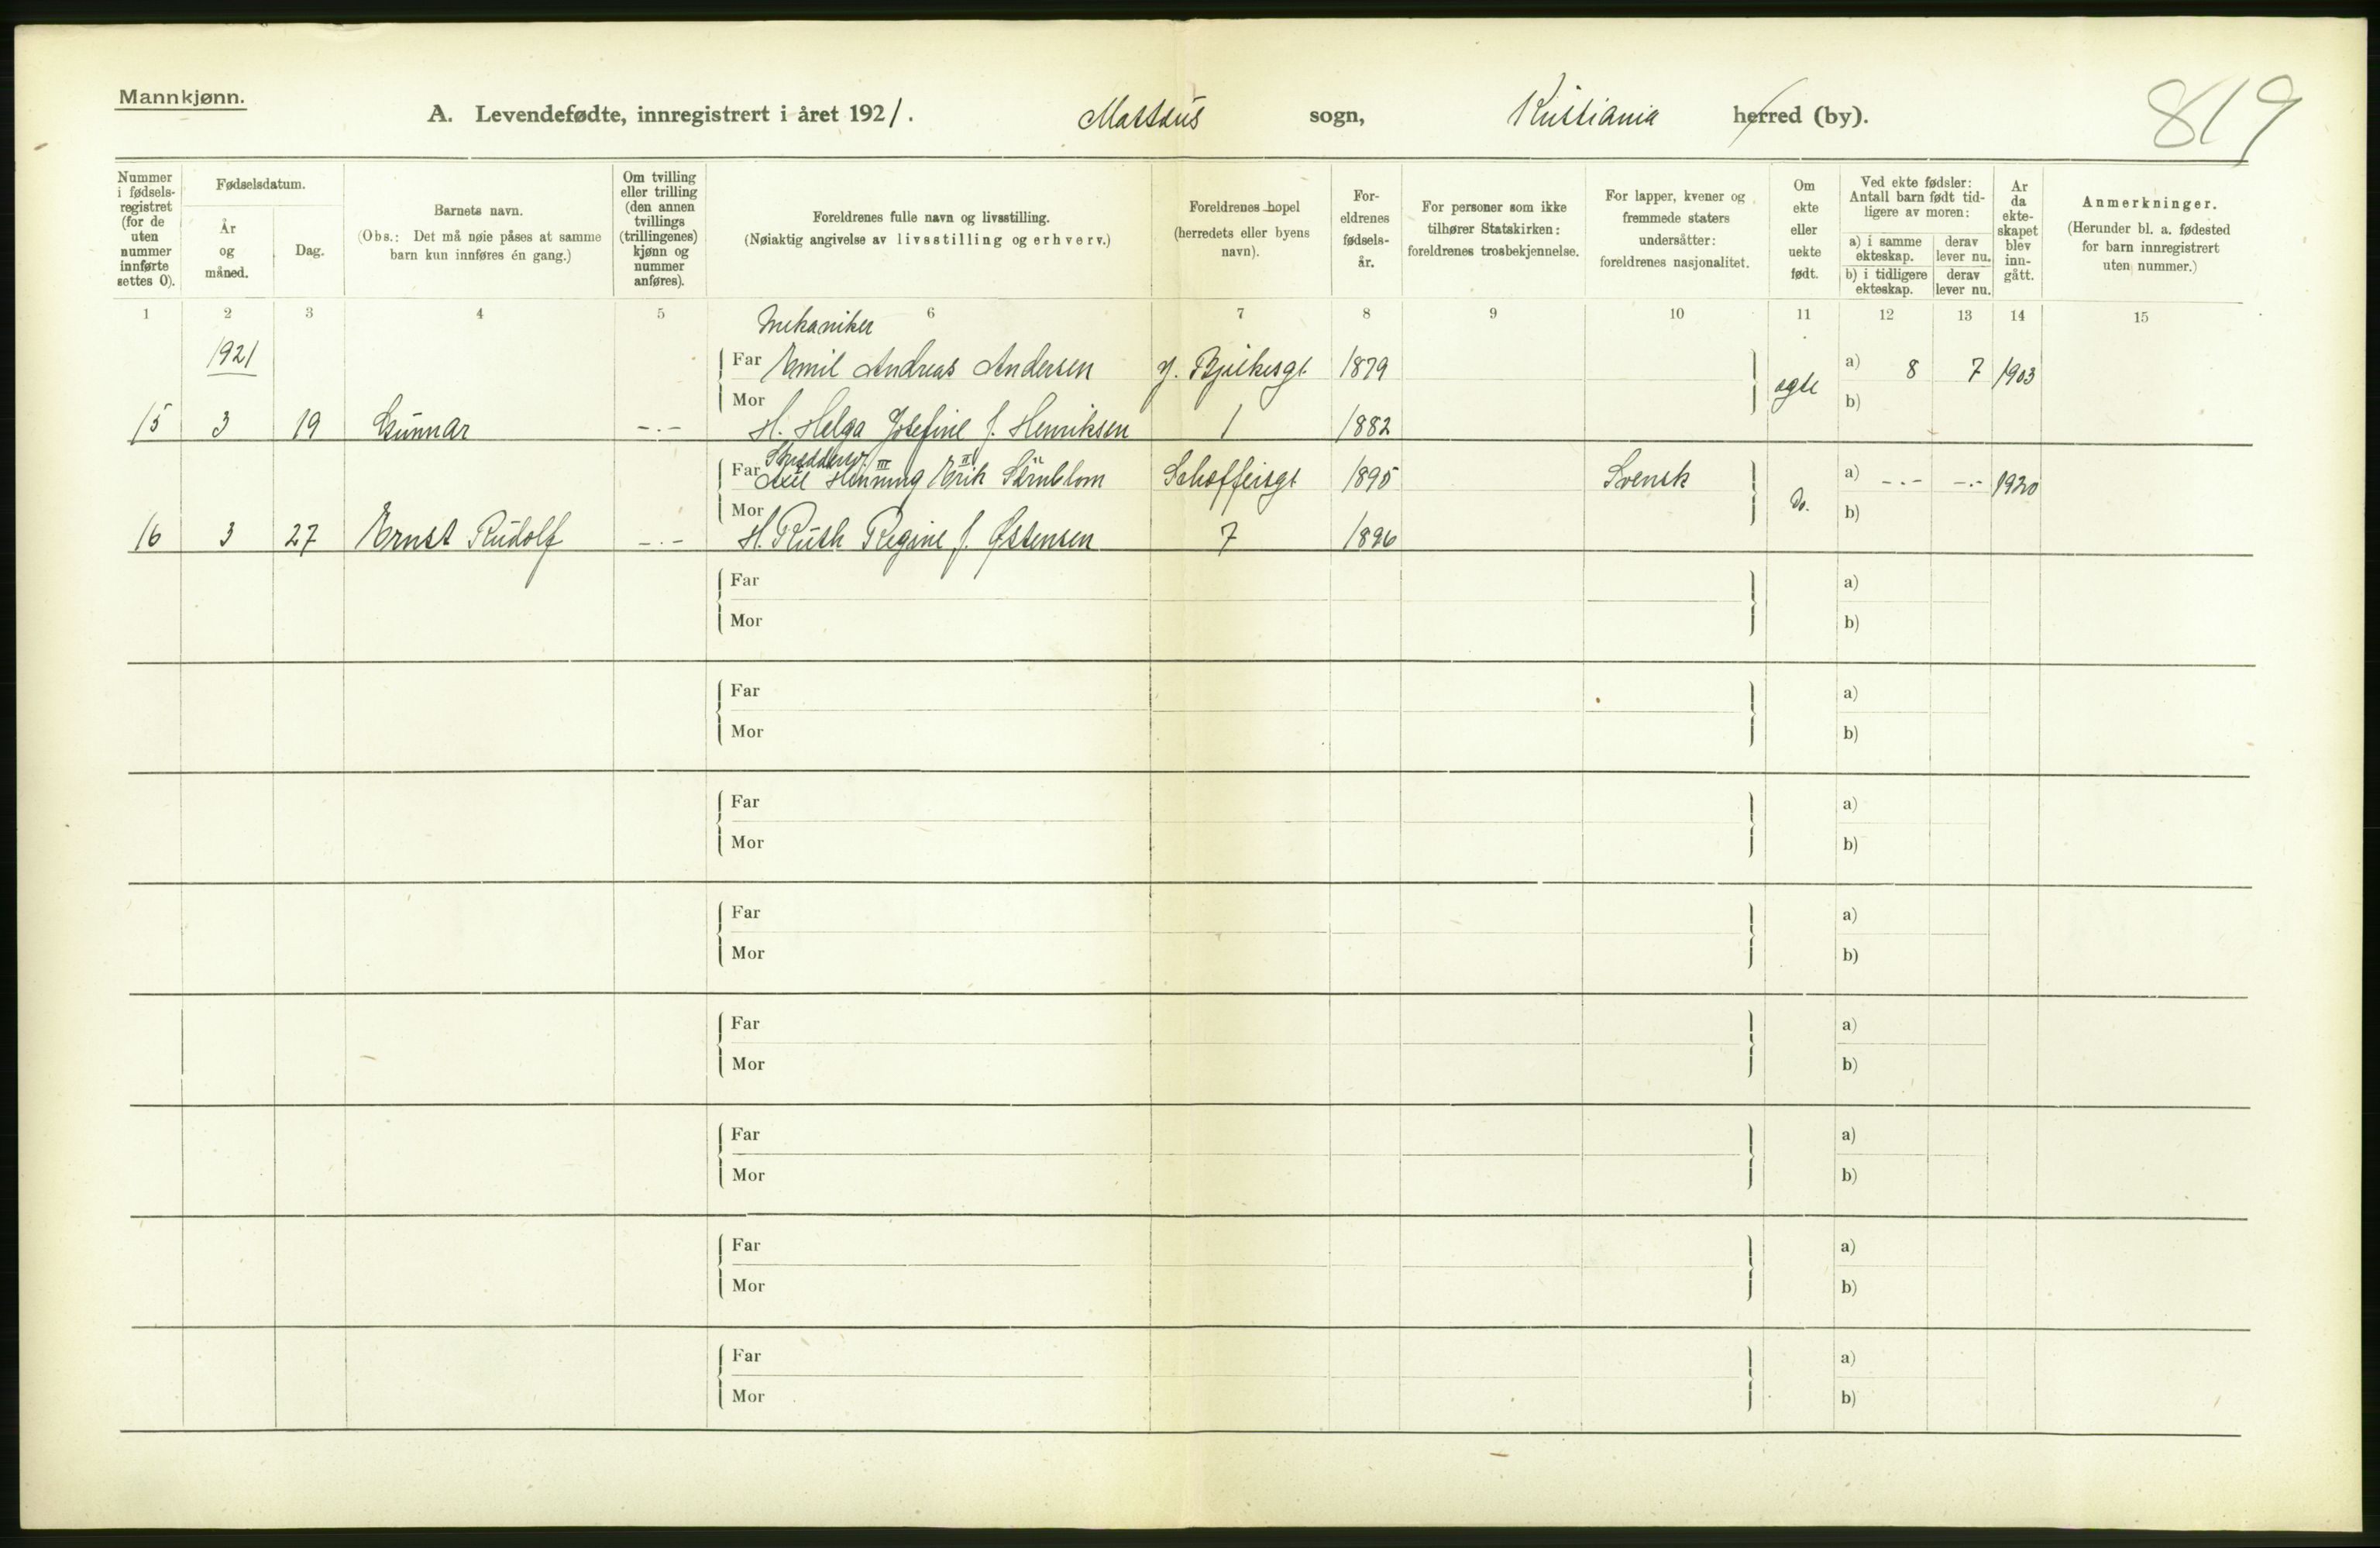 Mannkjønn.
A. Levendefødte, innregistrert i året 1921. Mattæus sogn, Kristiania herred (by). 819
Nummer i fødsels-registret (for de uten nummer innførte settes 0).
Fødselsdatum.
År og måned.
Dag.
Barnets navn.
(Obs.: Det må nøie påses at samme barn kun innføres én gang.)
Om tvilling eller trilling (den annen tvillings (trillingenes) kjønn og nummer anføres).
Foreldrenes fulle navn og livsstilling.
(Nøiaktig angivelse av livsstilling og erhverv.)
Foreldrenes bopel
(herredets eller byens navn).
For-eldrenes fødsels-år.
For personer som ikke tilhører Statskirken: foreldrenes trosbekjennelse.
For lapper, kvener og fremmede staters undersåtter: foreldrenes nasjonalitet.
Om ekte eller uekte født.
Ved ekte fødsler: Antall barn født tid-ligere av moren:
a) i samme ekteskap.
derav lever nu.
b) i tidligere ekteskap.
derav lever nu.
År da ekte-skapet blev inn-gått.
Anmerkninger.
(Herunder bl. a. fødested for barn innregistrert uten nummer.)
1 2 3 4 5 6 7 8 9 10 11 12 13 14 15
Mekaniker
1921 Far Emil Andreas Andersen 1879 a) 8 7 1903
Mor ægte b)
15 3 19 Gunnar -.- H. Helga Josefine f. Henriksen 1 1882
Far Axel Henning III Erik II 1895 Svensk a) -.- -.- 1920
Mor Do. b)
16 3 27 Ernst Rudolf -.- H. Ruth Regine f. Østensen 7 1896
Far a)
Mor b)
Far a)
Mor b)
Far a)
Mor b)
Far a)
Mor b)
Far a)
Mor b)
Far a)
Mor b)
Far a)
Mor b)
Far a)
Mor b)